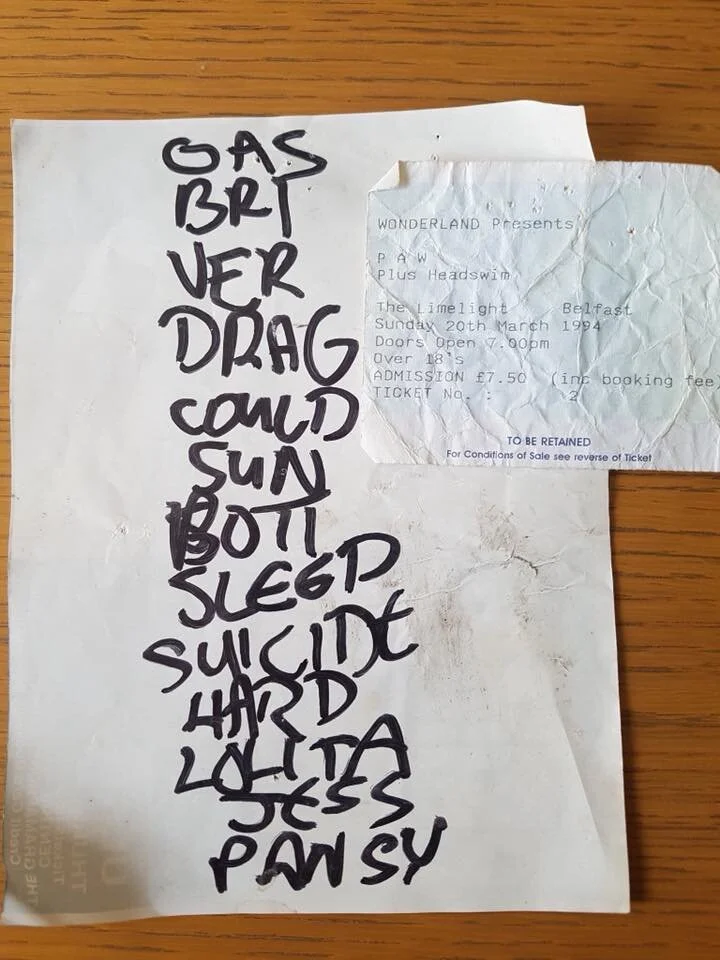 GAS
BRI
VER
DRAG
COULD
SUN
BOTT
SLEGD
SUICIDE
HARD
LOLITA
JESS
PANSY
WONDERLAND Presents
P A W
Plus Headswim
The Limelight Belfast
Sunday 20th March 1994
Doors Open 7.00pm
Over 18's
ADMISSION £7.50 (inc booking fee)
TICKET No. : 2
TO BE RETAINED
For Conditions of Sale see reverse of Ticket